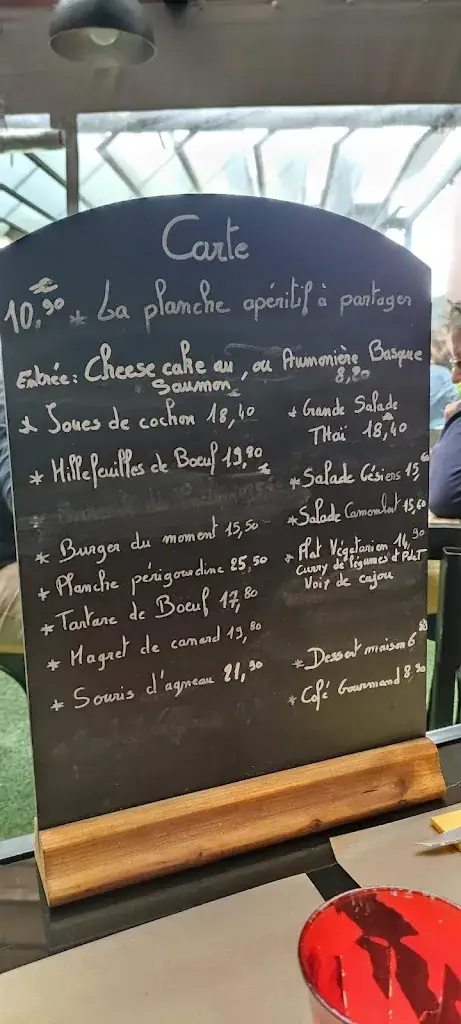 Carte
10,90 * La planche apéritif à partager
Entrée: Cheese cake au Saumon, ou Aumonière Basque 8,20
* Joues de cochon 18,40
* Millefeuilles de Boeuf 19,80
* Burger du moment 15,50
* Planche périgourdine 25,50
* Tartare de Boeuf 17,80
* Magret de canard 19,80
* Souris d'agneau 21,90
* Grande Salade
Thaï 18,40
* Salade Gésiers 15,
* Salade Camembert 15,60
* Plat Végétarien 14,90
Curry de légumes et
Noix de cajou
* Dessert maison 6
* Café Gourmand 8,90